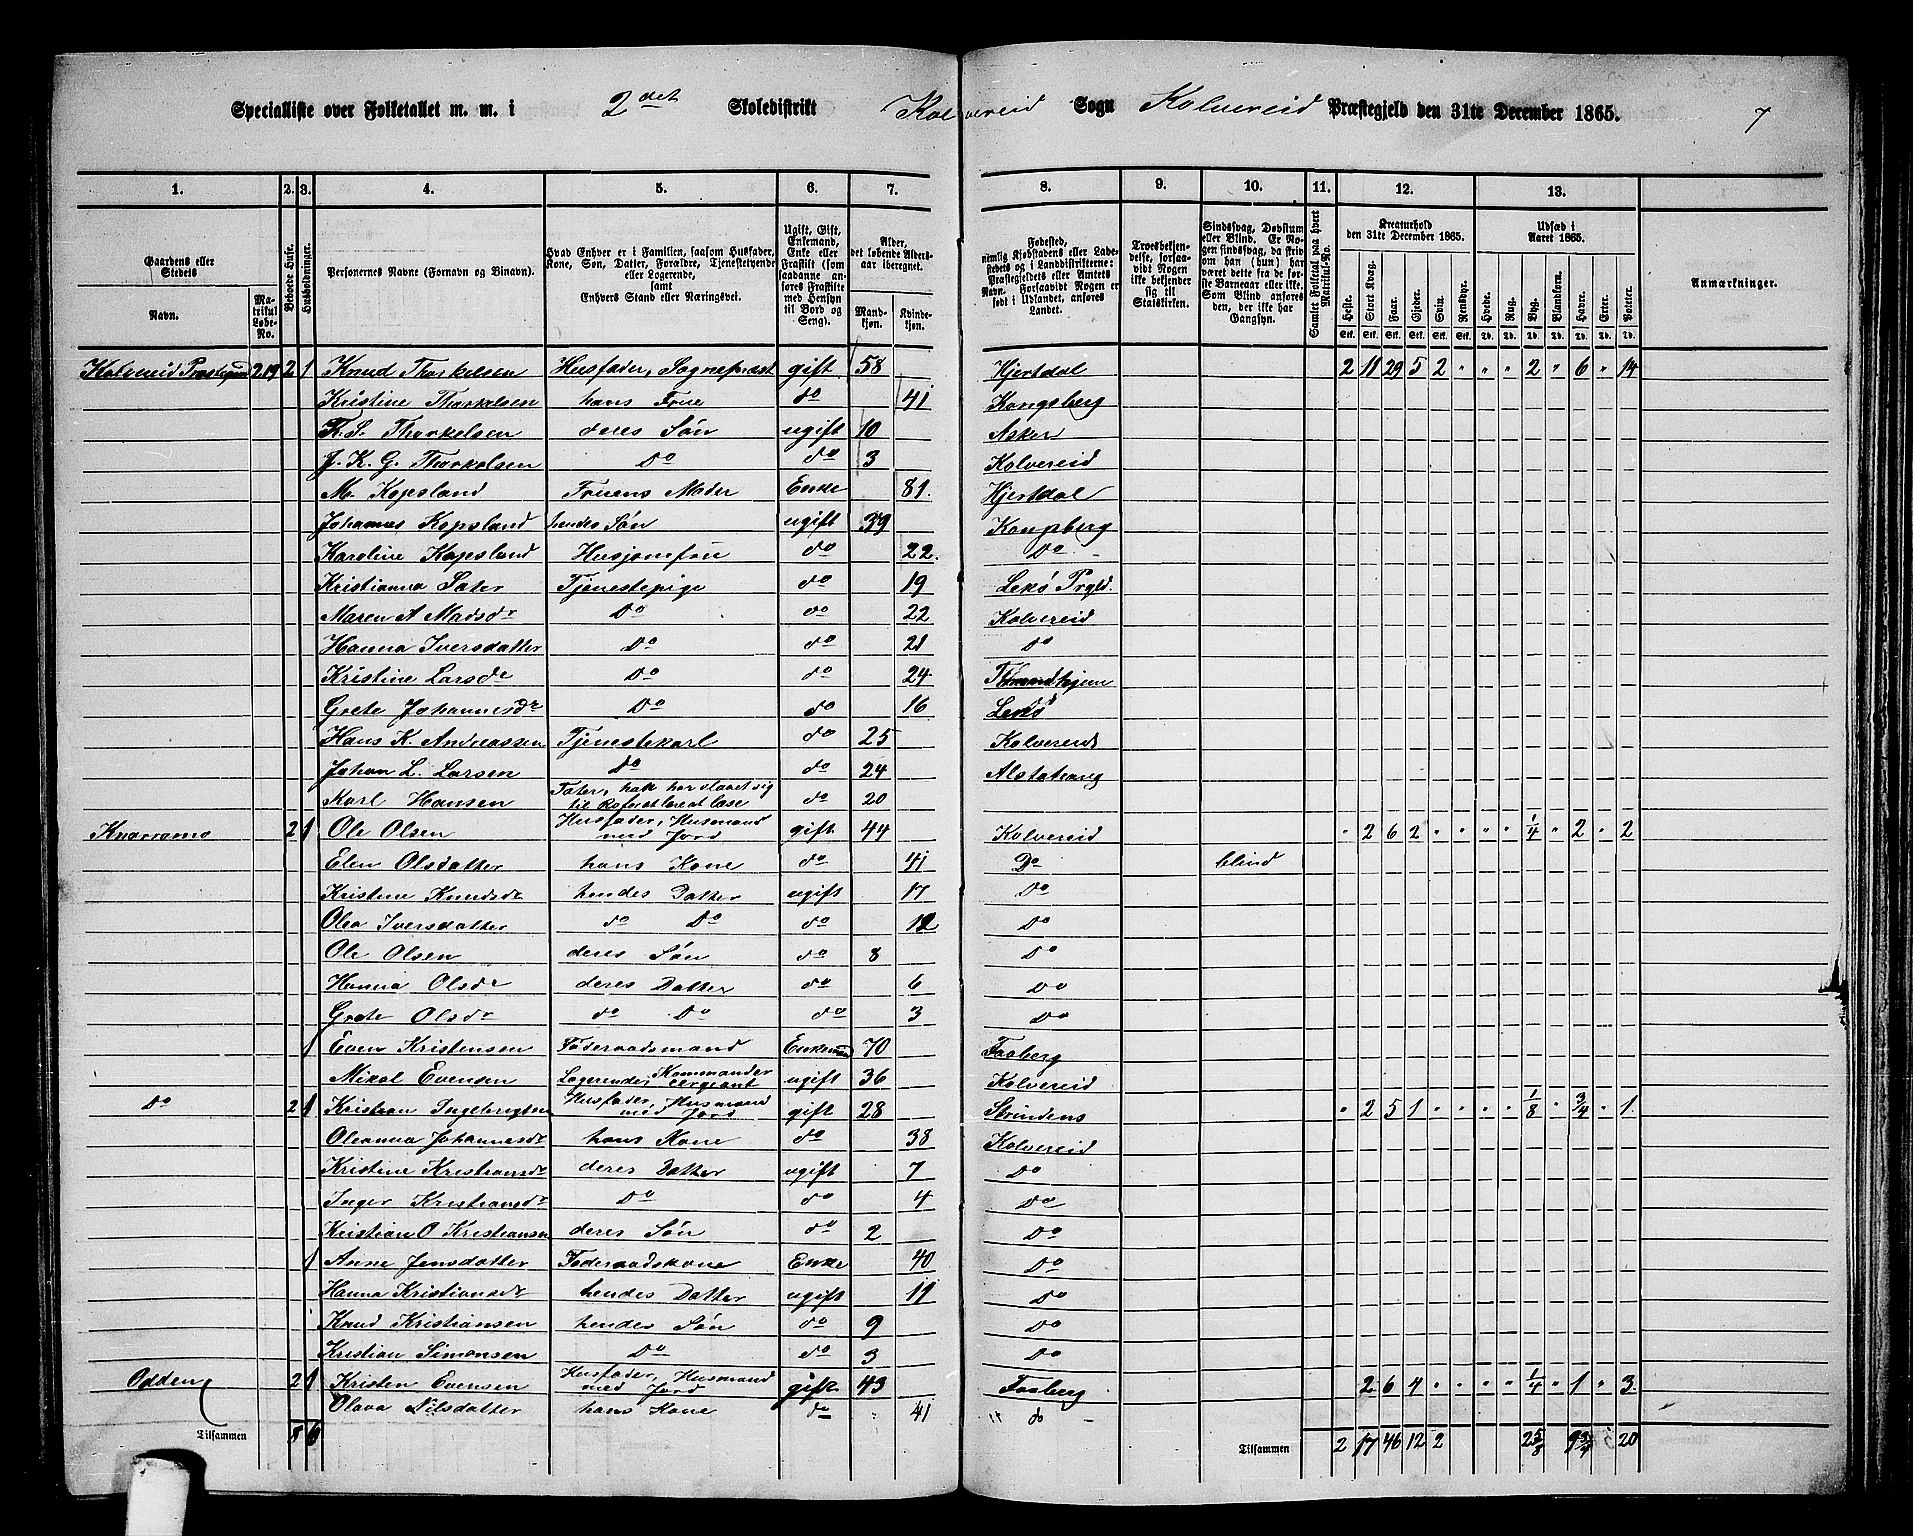 Specialliste over Folketallet m. m. i 2det Skoledistrikt Kolvereid Sogn Kolvereid Præstegjeld den 31te December 1865. 7
1. 2. 3. 4. 5. 6. 7. 8. 9. 10. 11. 12. 13.
Gaardens eller Stedets Navn. Matrikul Løbe-No. Beboede Huse. Husholdninger. Personernes Navne (Fornavn og Binavn). Hvad Enhver er i Familien, saasom Husfader, Kone, Søn, Datter, Forældre, Tjenestetyende eller Logerende, samt Enhvers Stand eller Næringsvei. Ugift, Gift, Enkemand, Enke eller Fraskilt (som saadanne anføres Fraskilte med Hensyn til Bord og Seng). Alder, det løbende Aldersaar iberegnet. Mandkjøn. Kvindekjøn.
Fødested, nemlig Kjøbstadens eller Ladestedets og i Landdistrikterne: Præstegjeldets eller Amtets Navn. Forsaavidt Nogen er født i Udlandet, anføres Landet. Troesbekjendelse, forsaavidt Nogen ikke bekjender sig til Statskirken. Sindssvag, Døvstum eller Blind. Er Nogen sindssvag, da skriv om han (hun) har været dette fra de første Barneaar eller ikke. Som Blind anføres den, der ikke har Gangsyn. Samlet Folketal paa hvert Matrikul-No. Kreaturhold den 31te December 1865. Heste. Stort Kvæg. Faar. Gjeder. Svin. Rensdyr. Udsæd i Aaret 1865. Hvede. Rug. Byg. Blandkorn. Havre. Erter. Poteter. Anmærkninger.
Kolvereid Præstegaard 219 2 1 Knud Thorkelsen Husfader, Sognepræst gift 58 Hjertdal 2 11 29 5 2 " " " 2 " 6 " 14
Kristine Thorkelsen hans Frue do 41 Kongsberg
Thorkelsen deres Søn ugift 10 Asker
J. K. G. Thorkelsen Do do 3 Kolvereid
M. Kopsland Fruens Moder Enke 81. Hjertdal
Johannes Kopsland hendes Søn ugift 39 Kongsberg
Karoline Kopsland Husjomfru do 22. Do
Kristianna Sater Tjenestepige do 19 Lekø Prgld.
Maren A Madsdr Do do 22 Kolvereid
Hanna Iversdatter Do do 21 Do
Kristine Larsdr Do do 24 Throndhjem
Grete Johannesdr Do do 16 Lekø
Hans K. Andreassen Tjenestekarl do 25 Kolvereid
Johan L. Larsen Do do 24 Alstahaug
Karl Hansen Tater, har slaaet sig til Ro for at lære at læse do 20
Knarramo 2 1 Ole Olsen Husfader, Husmand med Jord gift 44 Kolvereid " 2 6 2 " " " " 1/4 " 2 " 2
Elen Olsdatter hans Kone do 41 Do blind
Kristine Knudsdr hendes Datter ugift 17 Do
Olea Iversdatter do Do do 12 Do
Ole Olsen deres Søn do 8 Do
Hanna Olsdr deres Datter do 6 Do
Grete Olsdr do Do do 3 Do
1 Even Kristensen Føderaadsmand Enkemand 70 Faaberg
Mikal Evensen Logerende, Kommandersergeant ugift 36 Kolvereid
Do 2 1 Kristian Ingebrigtsen Husfader, Husmand med Jord gift 28 Strindens " 2 5 1 " " " " 1/8 " 3/4 " 1.
Oleanna Johannesdr hans Kone do 38 Kolvereid
Kristine Kristiansdr deres Datter ugift 7 Do
Inger Kristiansdr Do do 4 Do
Kristian O Kristiansen deres Søn do 2 Do
1 Anne Jensdatter Føderaadskone Enke 40 Do
Hanna Kristiansdr hendes Datter ugift 11 Do
Knud Kristiansen hendes Søn do 9 Do
Kristian Simonsen Do do 3 Do
Odden 2 1 Kristen Evensen Husfader, Husmand med Jord gift 43 Faaberg 2 6 4 " " " " 1/4 " 1 " 3.
Olava Nilsdatter hans Kone do 41 do
Tilsammen 8 6 Tilsammen 2 17 46 12 2 2 5/8 9 3/4 20